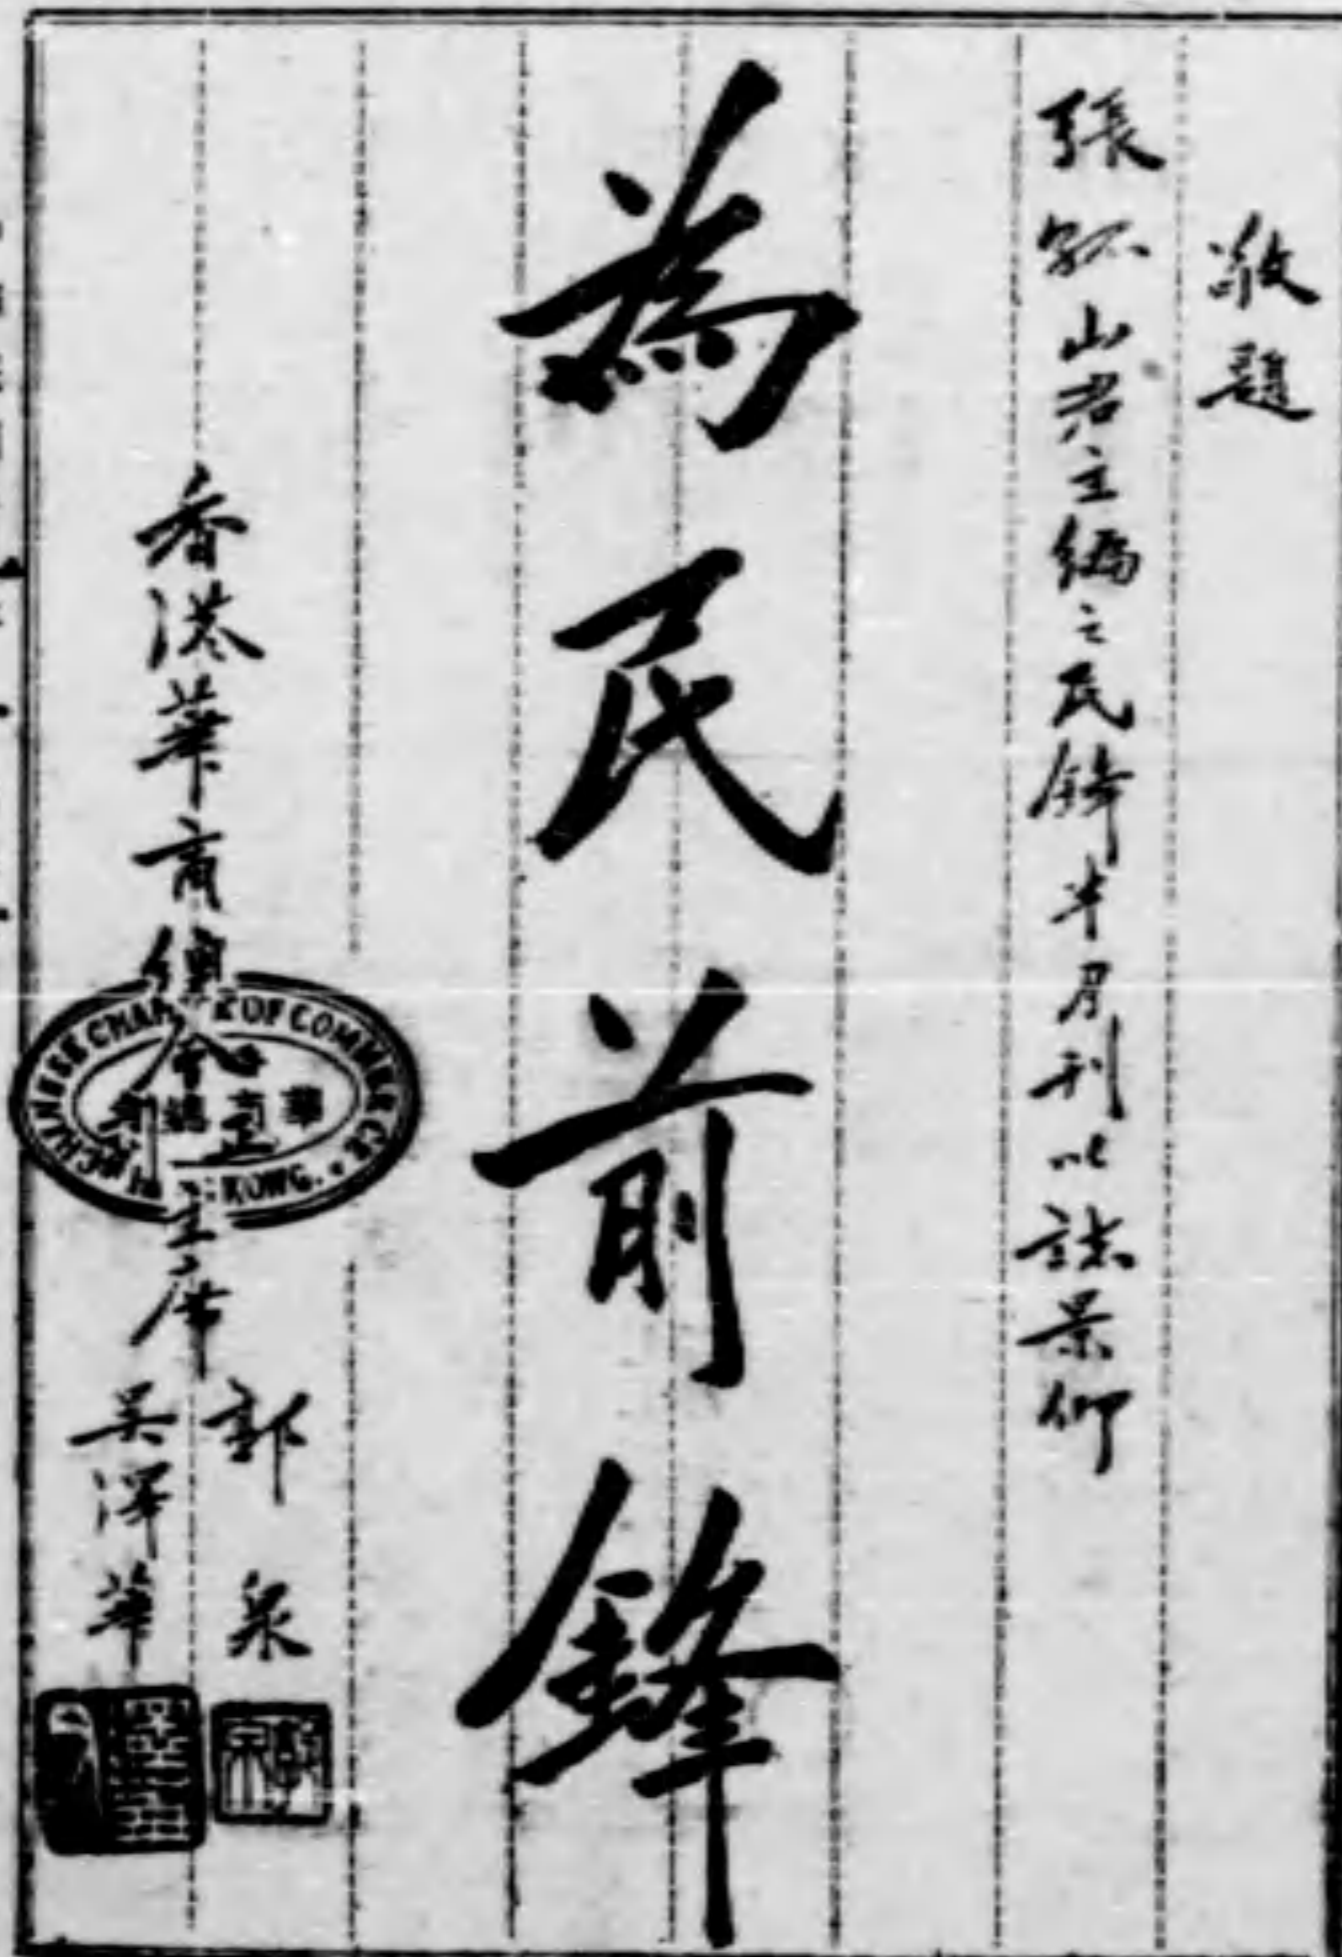 敬題
張孤山君主編之民鋒半月刊以誌景仰
為民前鋒
香港華商總會正副主席
郭泉
吳澤華
CHINESE CHAMBER OF COMMERCE
KONG.